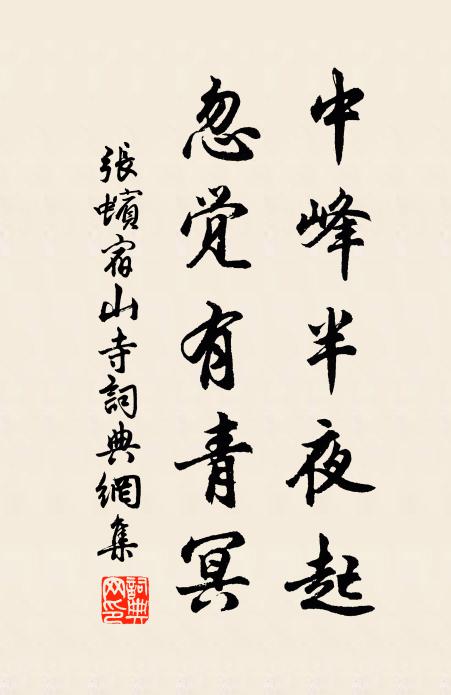 中峰半夜起
忽觉有青冥
張蠙宿山寺詞典網集
詞典网印